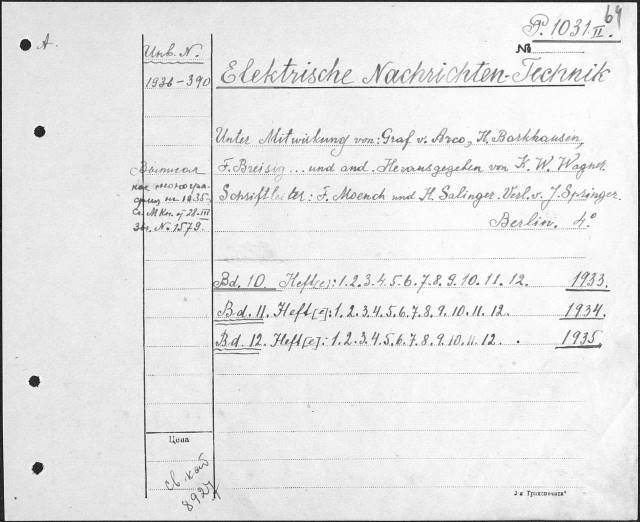 64
P. 1031 II
A.
№
Инв. N.
1936-390
Elektrische Nachrichten-Technik
Unter Mitwirkung von: Graf v. Arco, H. Barkhausen,
F. Breisig... und and. Herausgegeben von K. W. Wagner.
Schriftleiter: F. Moench und H. Salinger. Verl. v. J. Springer.
Berlin. 4°
Выписал
как моногра-
фию
1935
28-III
N. 1579.
Bd. 10. Heft[e]: 1. 2. 3. 4. 5. 6. 7. 8. 9. 10. 11. 12. 1933.
Bd. 11. Heft[e]: 1. 2. 3. 4. 5. 6. 7. 8. 9. 10. 11. 12. 1934.
Bd. 12. Heft[e]: 1. 2. 3. 4. 5. 6. 7. 8. 9. 10. 11. 12. 1935.
Цена
св. кат
8927